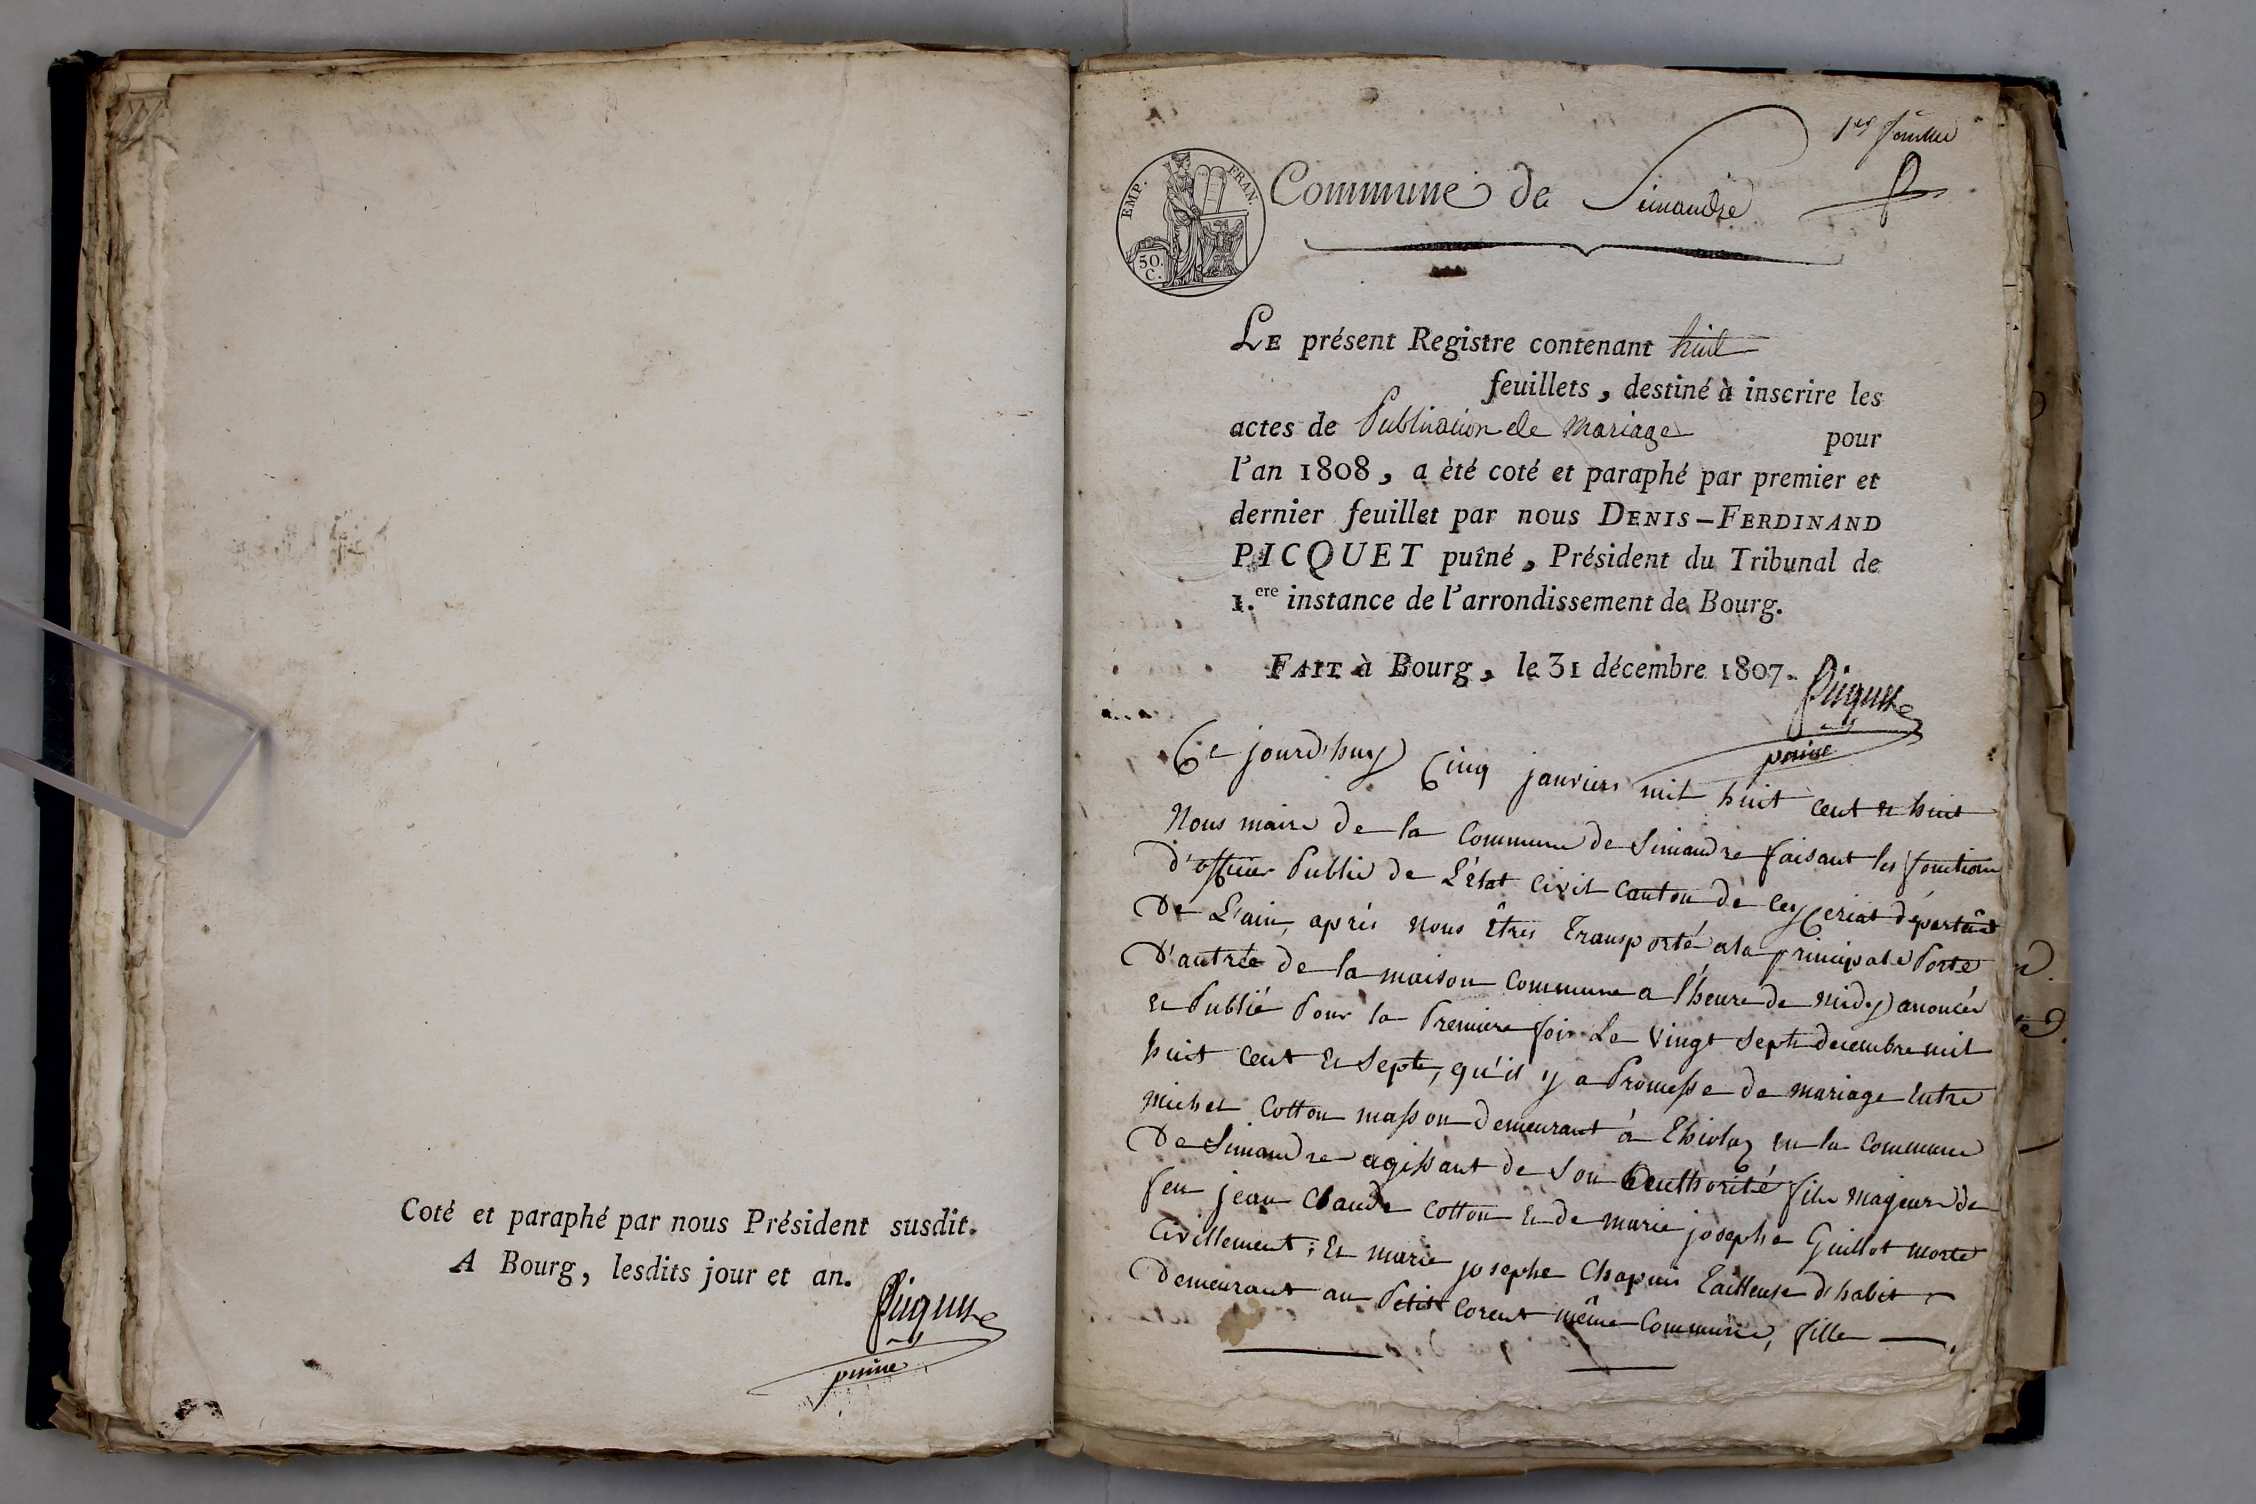 Coté et paraphé par nous Président susdit.
A Bourg, lesdits jour et an.
Picquet
puine
1er feuillet
EMP. FRAN.
50.
C.
Commune de Simandre
LE présent Registre contenant huit
feuillets, destiné à inscrire les
actes de Publication de Mariage pour
l'an 1808, a èté coté et paraphé par premier et
dernier feuillet par nous DENIS-FERDINAND
PICQUET puîné, Président du Tribunal de
1.ere instance de l'arrondissement de Bourg.
FAIT à Bourg, le 31 décembre 1807.
Picquet
puine
Ce jourd'huy Cinq janviers mil huit cent et huit
Nous maire de la Commune de Simandre faisant les fonction
d'officier Public de L'état Civil Canton de Ceyzeriat départemt
De L'ain, aprés nous êtres transporté a la principale Porte
D'autrée de la maison Commune a l'heure de midy anoncér
et Publié Pour la Premiere fois Le vingt Sept decembre mil
huit Cent et Sept, qu'il y a Promesse de mariage Entre
michel Cotton masson demeurant à Thiolaz en la Commune
De Simandre agissant de Son authorité fils majeur de
feu jean Claude Cotton et de marie josephe Guillot morte
Civillement; Et marie josephe Chapuis tailleuse d'habit
Demeurant au Petit Corent même Commune, fille